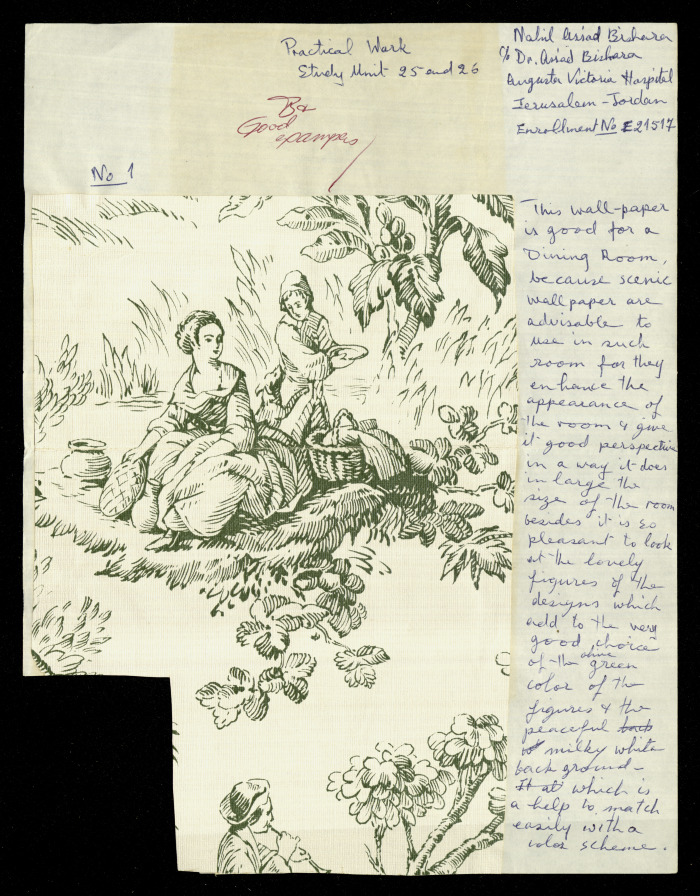 Practical Work
Study Unit 25 and 26
Nabil Assad Bishara
c/o Dr. Assad Bishara
Augusta Victoria Hospital
Jerusalem - Jordan
Enrollment No E21517
B+
Good
No 1
This wall-paper
is good for a
Dining Room,
because scenic
wallpaper are
advisable to
use in such
room for they
enhance the
appearance of
the room & give
it good perspective
in a way it does
in large the
size of the room
besides it is so
pleasant to look
at the lovely
figures of the
designs which
add to the very
good choice
of the olive green
color of the
figures & the
peaceful
milky white
back ground -
It at which is
a help to match
easily with a
color scheme.